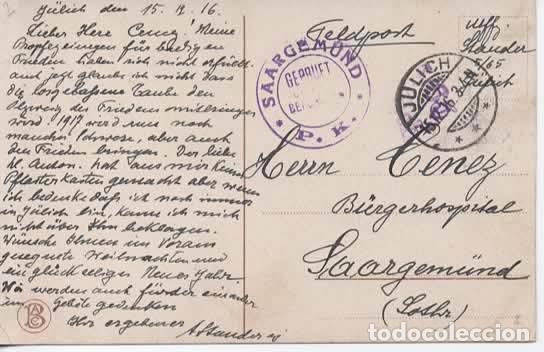 Jülich den 15. 12. 16.
Lieber Herr Cenez! Meine
Profezeiungen für baldigen
Frieden haben sich nicht erfüllt
und jetzt glaube ich nicht dass
die losgelassene Taube den
des Friedens mitbringen
wird. 1917 wird uns noch
manches Schwere, aber auch
den Frieden bringen. Der liebe
hl. Anton. hat aus mir keinen
Pflasterkasten gemacht aber wenn
ich bedenke daß ich noch immer
in Jülich bin, kann ich mich
nicht über Ihn beklagen.
Wünsche Ihnen im Voraus
gesegnete Weihnachten und
ein glückseliges Neues Jahr.
Wir werden auch fürder einander
im Gebete gedenken
Ihr ergebener
Feldpost
Stander
5/65
Jülich
SAARGEMÜND
GEPRÜFT
P. K.
JÜLICH
Herrn Cenez
Bürgerhospital
Saargemünd
(Lothr.)
todocoleccion.net